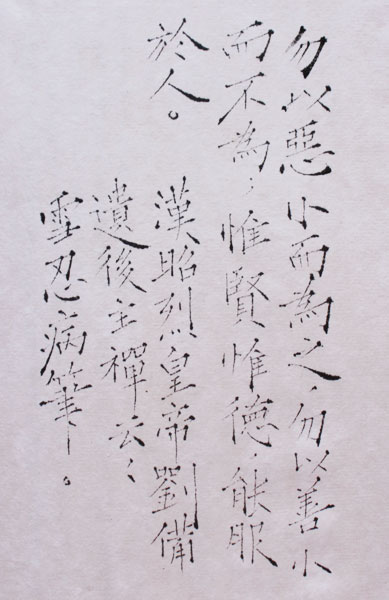 勿以惡小而為之，勿以善小
而不為，惟賢惟德，能服
於人。
漢昭烈皇帝劉備
遺後主禪云々
雪忍病筆。